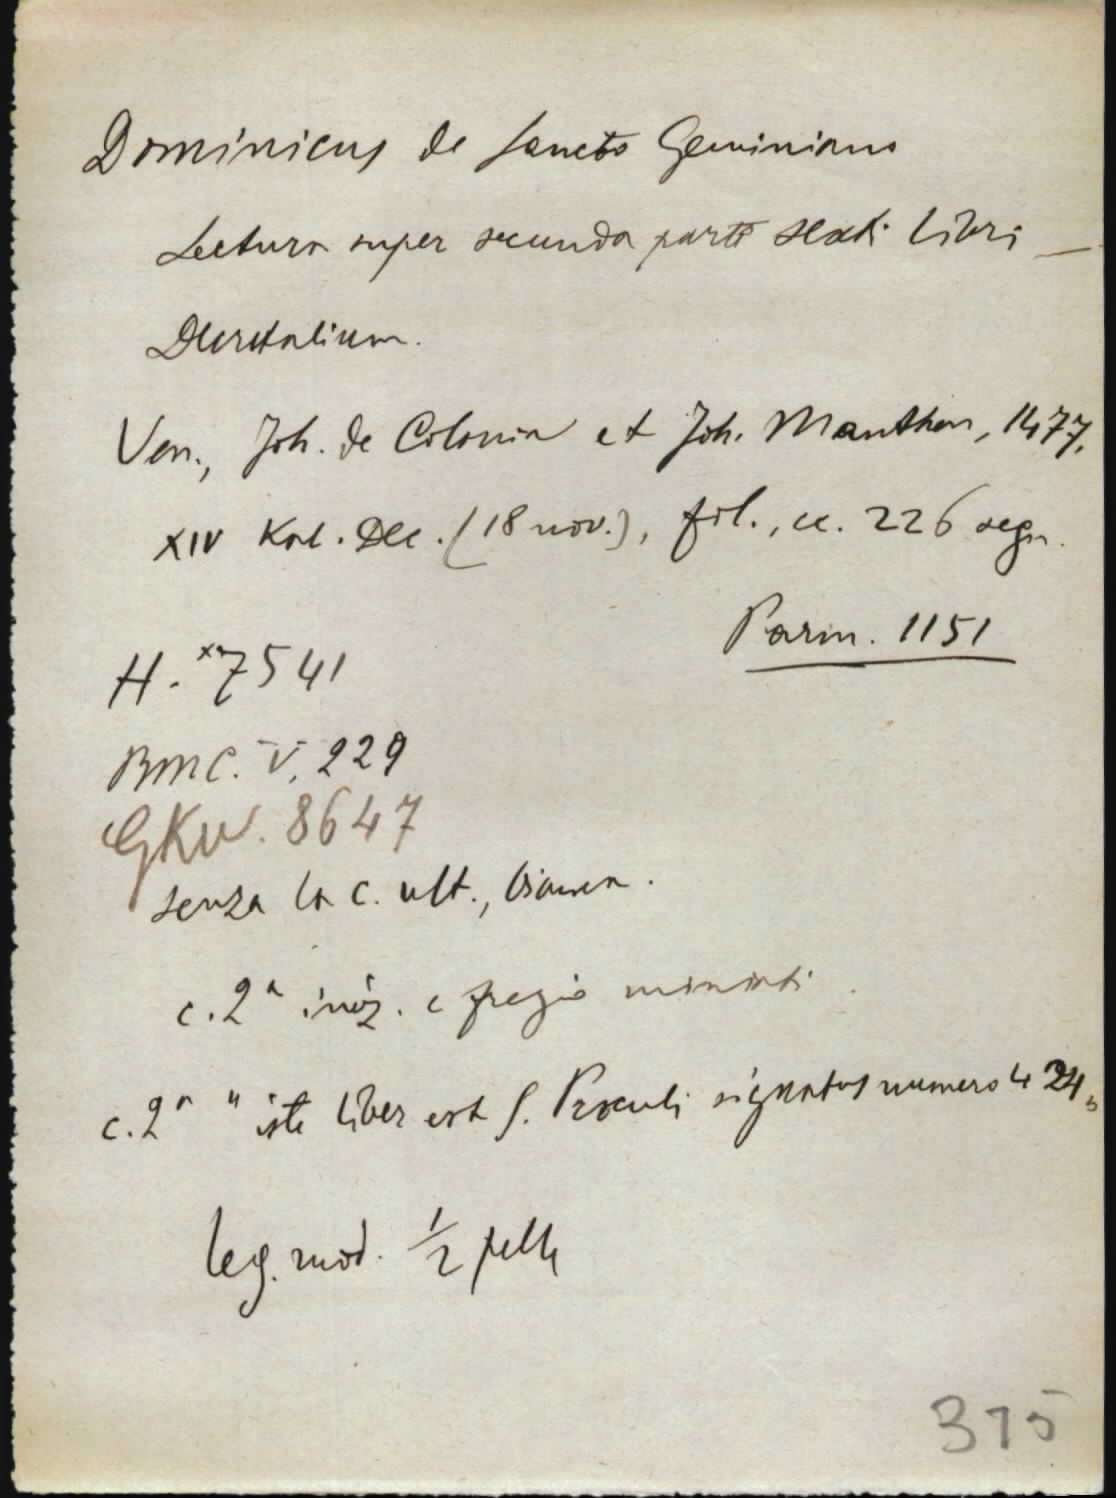 Dominicus de Sancto Geminiano
Lectura super secunda parte sexti libri —
Decretalium.
Ven., Joh. de Colonia et Joh. Manthen, 1477,
XIV Kal. Dec. (18 nov.), fol., cc. 226 segn.
Parm. 1151
H. *7541
BMC. V. 229
GKW. 8647
senza la c. ult., bianca.
c. 2ª iniz. e fregio miniati.
c. 2ª "iste liber est S. Proculi signatus numero 424"
leg. mod. 1/2 pelle
375